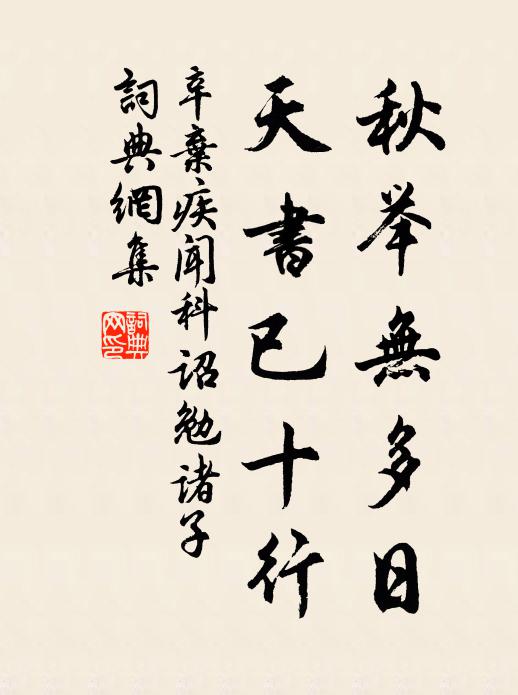 秋举無多日
天書已十行
辛棄疾闻科诏勉诸子
詞典網集
詞典網印